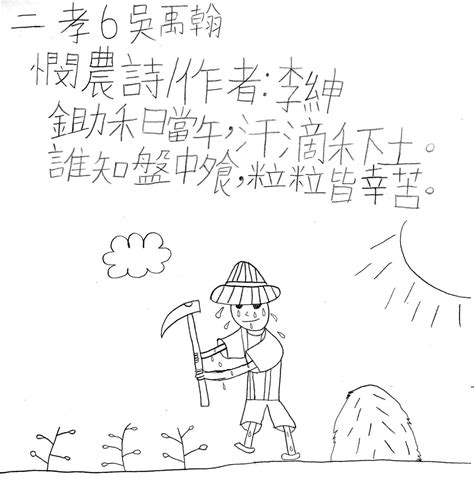 二孝6吳禹翰
憫農詩/作者:李紳
鋤禾日當午,汗滴禾下土。
誰知盤中飧,粒粒皆幸苦。